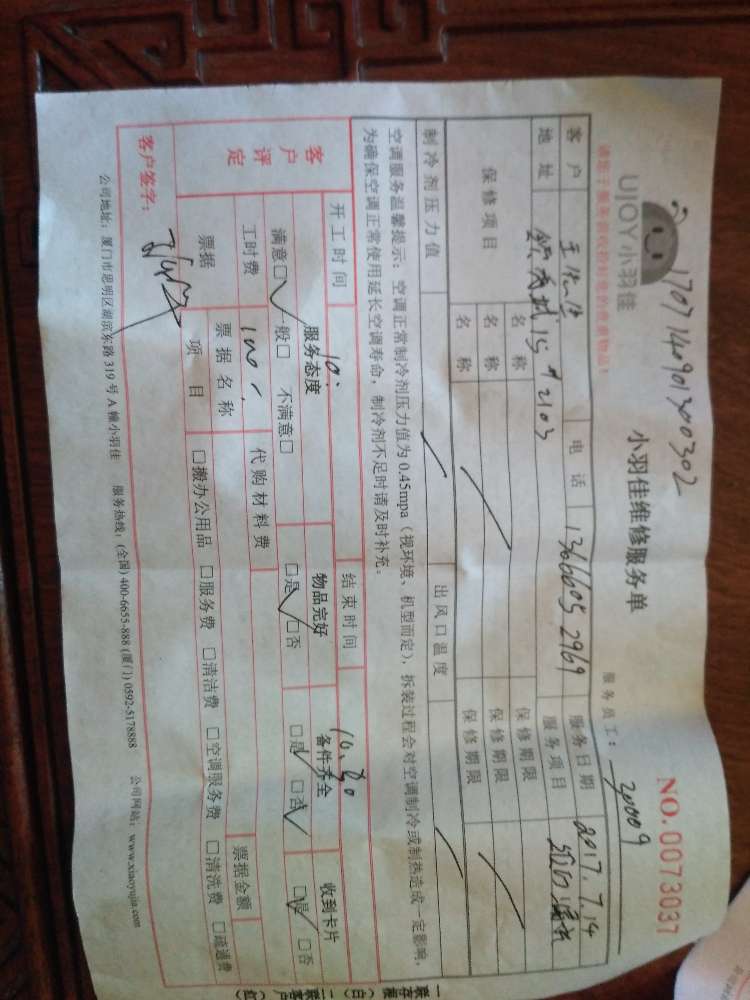 1707140901300302
UJOY小羽佳
小羽佳维修服务单
NO.0073037
服务员工: 20009
请您于服务前收拾好您的贵重物品!
客户 电话 13666052969 服务日期 2017.7.14
地址 15#2103 服务项目
保修项目 名称 保修期限
名称 保修期限
名称 保修期限
制冷剂压力值 出风口温度
空调服务温馨提示:空调正常制冷剂压力值为0.45mpa(视环境、机型而定),拆装过程会对空调制冷或制热造成一定影响,
为确保空调正常使用延长空调寿命,制冷剂不足时请及时补充。
开工时间 10: 结束时间 10.30
客户评定 服务态度 物品完好 备件齐全 收到卡片
满意□ 一般□ 不满意□ □是 □否 □是 □否 □是 □否
工时费 100 代购材料费
票据 票据名称 票据金额
项目 □搬办公用品 □服务费 □清洁费 □空调服务费 □清洗费 □疏通费
客户签字:
公司地址:厦门市思明区湖滨东路319号A幢小羽佳 服务热线:(全国)400-6655-888(厦门)0592-5178888 公司网站:www.xiaoyujia.com